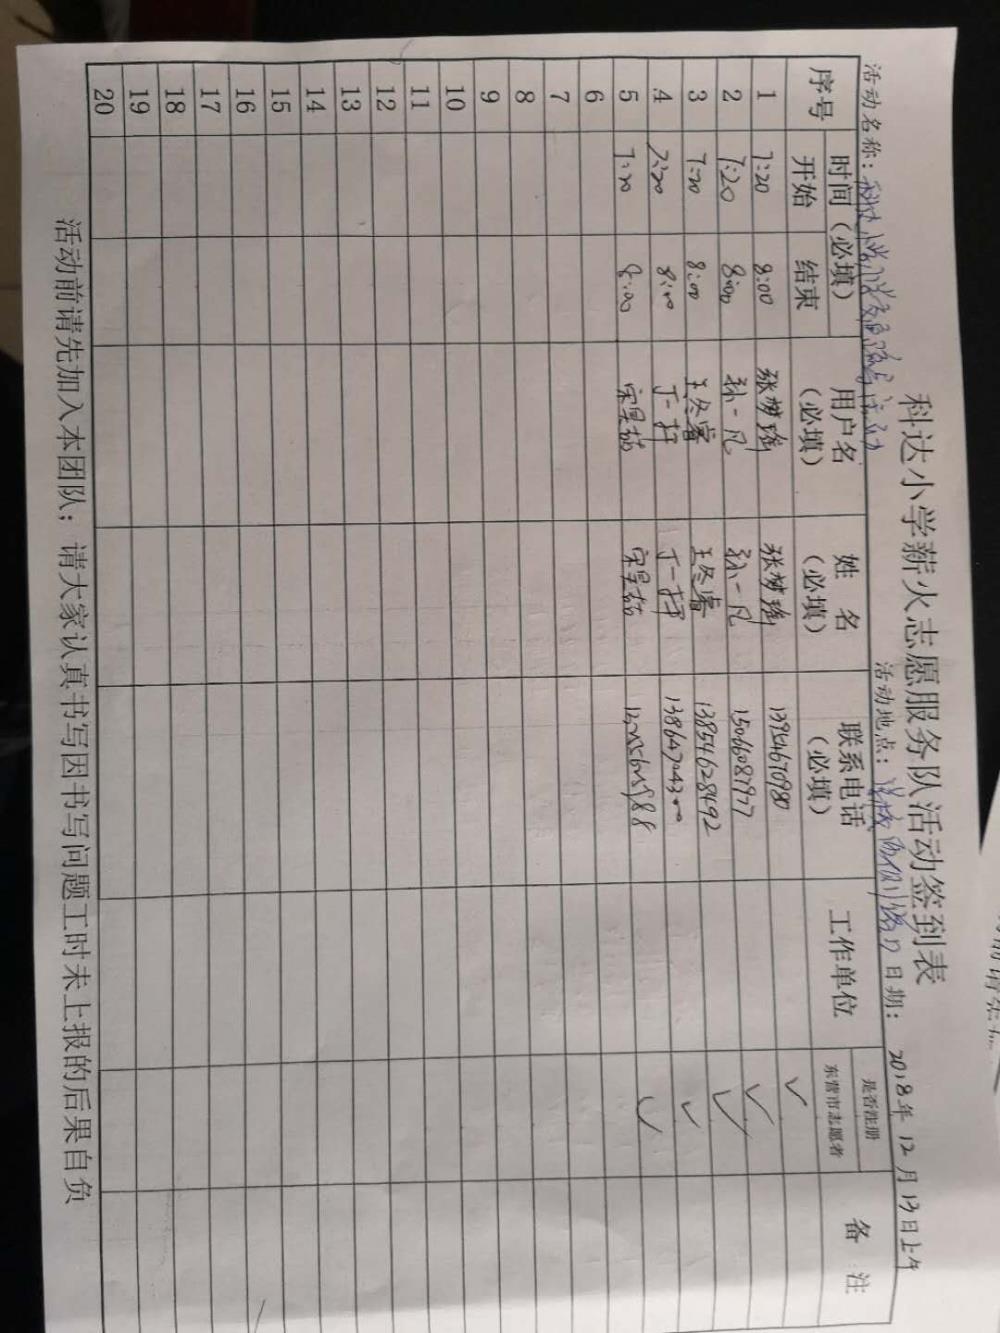 科达小学薪火志愿服务队活动签到表
活动名称：科达小学 活动 活动地点：学校 路口 日期： 2018年12月13日上午
序号 时间（必填） 用户名（必填） 姓名（必填） 联系电话（必填） 工作单位 是否注册东营市志愿者 备注
开始 结束
1 7:20 8:00 张梦瑶 张梦瑶 ✓
2 7:20 8:00 孙一凡 孙一凡 15066087977 ✓
3 7:20 8:00 王冬睿 王冬睿 13854628492 ✓
4 7:20 8:00 丁一 丁一 13864704300 ✓
5 7:20 8:00 宋昊 宋昊 ✓
6
7
8
9
10
11
12
13
14
15
16
17
18
19
20
活动前请先加入本团队；请大家认真书写因书写问题工时未上报的后果自负